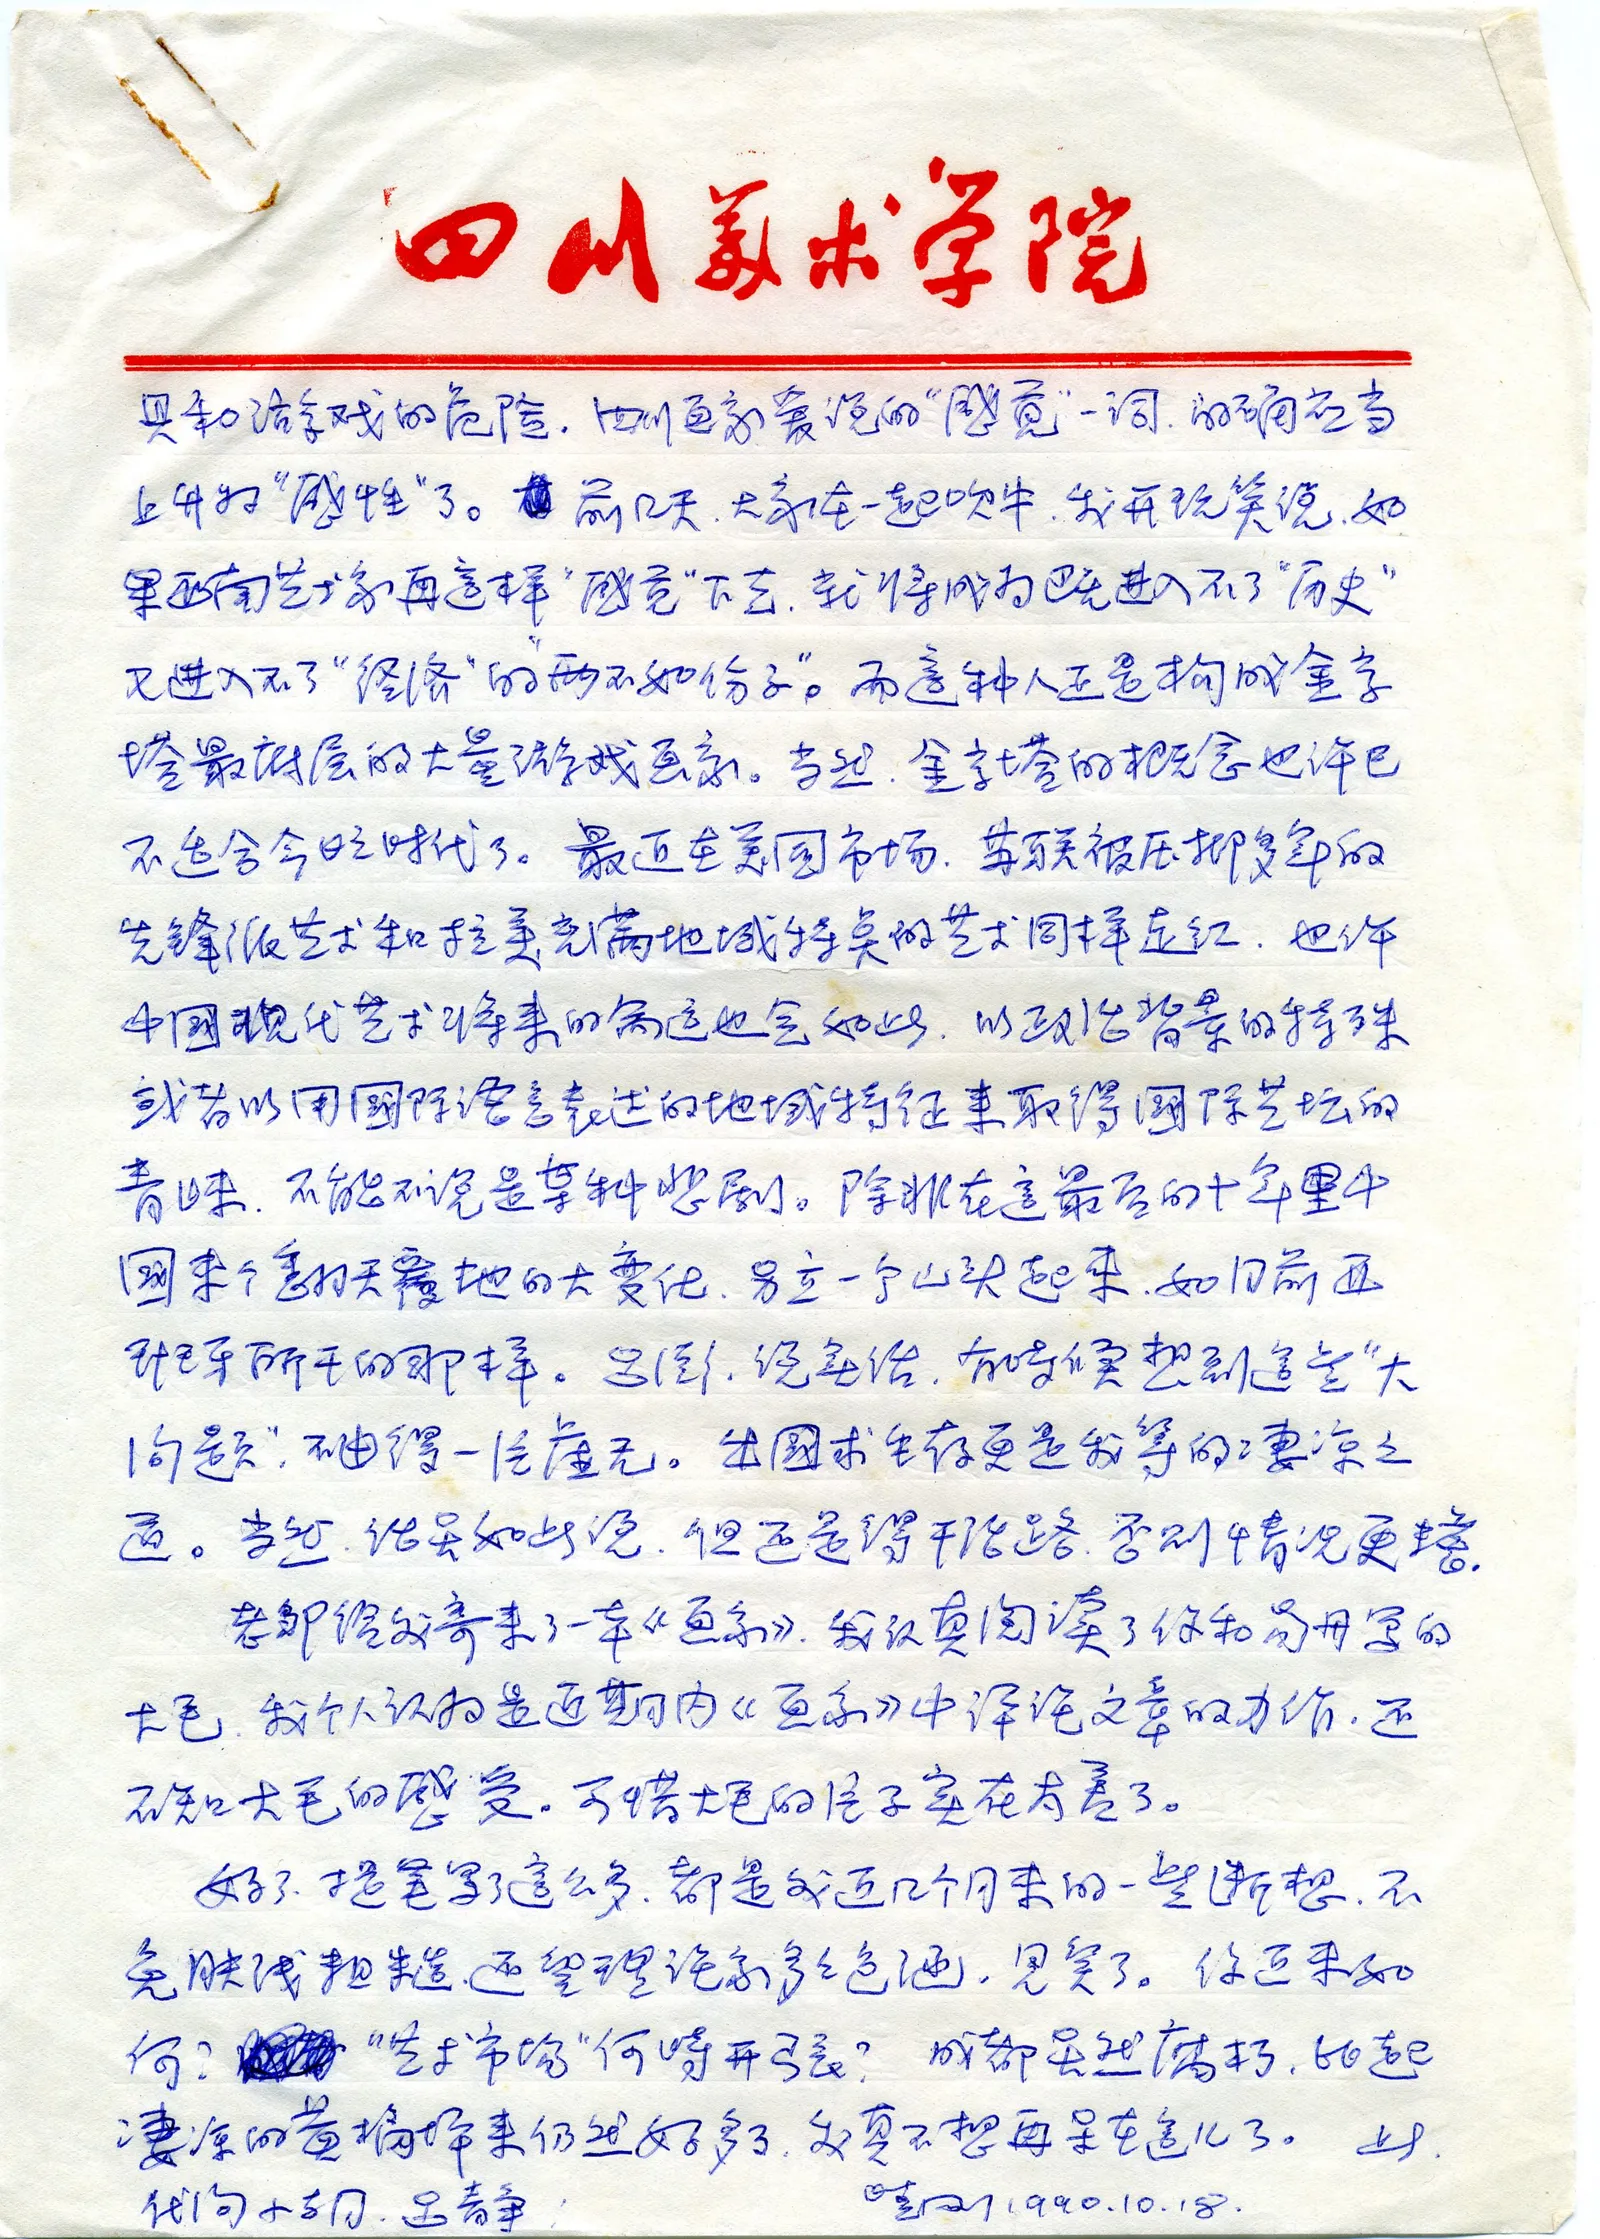 四川美术学院
具和游戏的危险. 四川画家爱说的“感觉”一词. 的确应当
上升为“感性”了。 前几天. 大家在一起吹牛. 我开玩笑说. 如
果西南艺术家再这样“感觉”下去. 就将成为既进入不了“历史”
又进入不了“经济”的“两不如份子”。而这种人正是构成金字
塔最底层的大量游戏画家。当然. 金字塔的概念也许已
不适合今日时代了。 最近在美国市场. 苏联被压抑多年的
先锋派艺术和拉美充满地域特点的艺术同样走红. 也许
中国现代艺术将来的命运也会如此. 以政治背景的特殊
或者以用国际语言表述的地域特征来取得国际艺坛的
青睐. 不能不说是某种悲剧。除非在这最后的十年里中
国来个翻天覆地的大变化. 另立一个山头起来. 如目前西
班牙所干的那样。吕澎. 说实话. 有时候想到这些“大
问题”. 不由得一阵虚无。出国求生存更是我等的凄凉之
道。当然. 话虽如此说. 但还是得干活路. 否则情况更糟.
老邹给我寄来了一本《画家》. 我认真阅读了你和易丹写的
大毛. 我个人认为是近期内《画家》中评论文章的力作. 还
不知大毛的感受。可惜大毛的片子实在太差了。
好了. 提笔写了这么多. 都是我近几个月来的一些断想. 不
免肤浅粗糙. 还望理论家多多包涵. 见笑了。 你近来如
何? “艺术市场”何时开张? 成都虽然腐朽. 比起
凄凉的黄桷坪来仍然好多了. 我真不想再呆在这儿了。 止此.
代问 吕静
晓刚 1990.10.18.